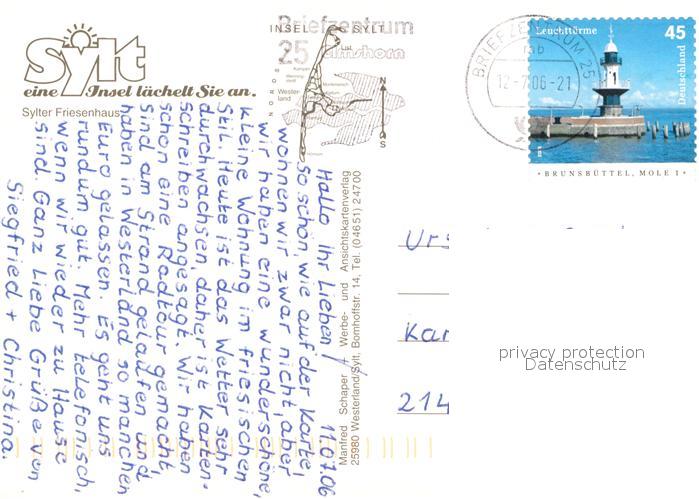 Sylt
eine Insel lächelt Sie an.
Sylter Friesenhaus
INSEL SYLT
NORDSEE
List
Kampen
Westerland
Hörnum
N
S
Briefzentrum
25
Elmshorn
BRIEFZENTRUM 25
mb
12-7.06-21
Leuchttürme
45
Deutschland
BRUNSBÜTTEL, MOLE 1
11.07.06
Hallo ihr Lieben!
So schön, wie auf der Karte,
wohnen wir zwar nicht, aber
wir haben eine wunderschöne,
kleine Wohnung im friesischen
Stil. Heute ist das Wetter sehr
durchwachsen, daher ist Karten-
schreiben angesagt. Wir haben
schon eine Radtour gemacht,
sind am Strand gelaufen und
haben in Westerland so manchen
Euro gelassen. Es geht uns
rundum gut. Mehr telefonisch,
wenn wir wieder zu Hause
sind. Ganz liebe Grüße von
Siegfried + Christina.
Manfred Schaper + Werbe- und Ansichtskartenverlag
25980 Westerland/Sylt, Bomhoffstr. 14, Tel. (04651) 24700
Urs
Kar
214
privacy protection
Datenschutz